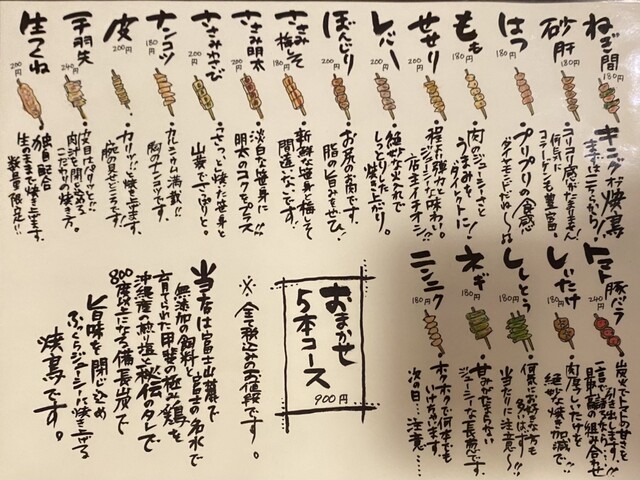 ねぎ間
180円
キング of 焼鳥
まずはコレからね!
砂肝
180円
コリコリ感がたまりません!
何気に
コラーゲンも豊富。
はつ
180円
プリプリの食感
ダイヤモンドだね〜
もも
180円
肉のジューシーさと
うまみを
ダイレクトに!
せせり
200円
程よい弾力と
ジューシーな味わい。
店主イチオシ!
レバー
180円
絶妙な火入れで
しっとりした
焼き上がり。
ぼんじり
200円
お尻の肉です。
脂の旨みをぜひ!
ささみ
梅しそ
180円
新鮮な笹身と梅しそ
間違いないです!
ささみ明太
200円
淡白な笹身に!!
明太のコクをプラス
ささみわさび
200円
さくっと焼いた笹身と
山葵でさっぱりと。
ナンコツ
180円
カルシウム満載!!
胸のナンコツです。
皮
200円
カリッと焼き上げます。
腕の見せどころです!
手羽先
240円
皮目はパリッと!!
肉汁を閉じ込める
こだわりの焼き方。
生つくね
200円
独自配合
生のまま焼き上げます。
数量限定!!
トマト
豚バラ
240円
炭火でトマトの甘さを
引き出します。
一言で言うなら…
最高の組み合わせ
しいたけ
180円
肉厚しいたけを
絶妙な焼き加減で!!
ししとう
180円
何気にお好きな方も
多いはず!
当たりに注意〜!
ネギ
180円
甘みがたまらない
ジューシーな長葱です。
ニンニク
180円
ホクホクで何本でも
いけちゃいます。
次の日…注意…
おまかせ
5本コース
900円
※全て税込のお値段です。
当店は富士山麓で
無添加の飼料と富士の名水で
育てられた甲斐の極み鶏を
沖縄産の煎り塩と秘伝のタレで
800度以上になる備長炭で
旨味を閉じ込め
ふっくらジューシーに焼き上げる
焼鳥です。